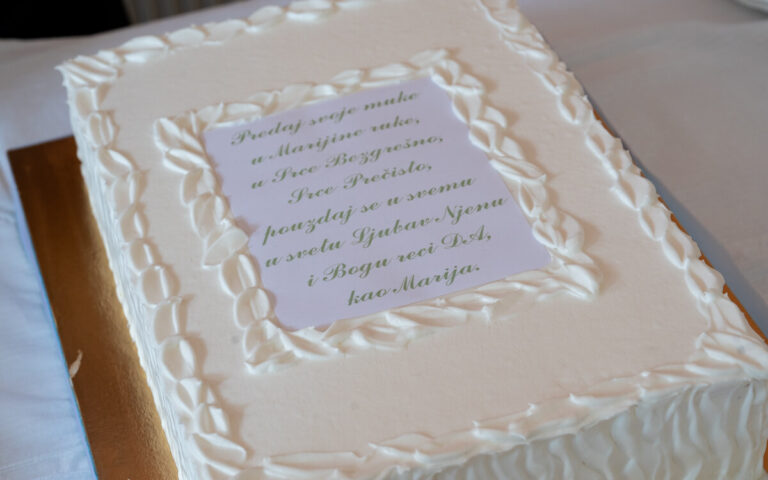 Predaj svoje muke
u Marijine ruke,
u Srce Bezgrešno,
Srce Prečisto,
pouzdaj se u svemu
u svetu Ljubav Njenu
i Bogu reci DA,
kao Marija.